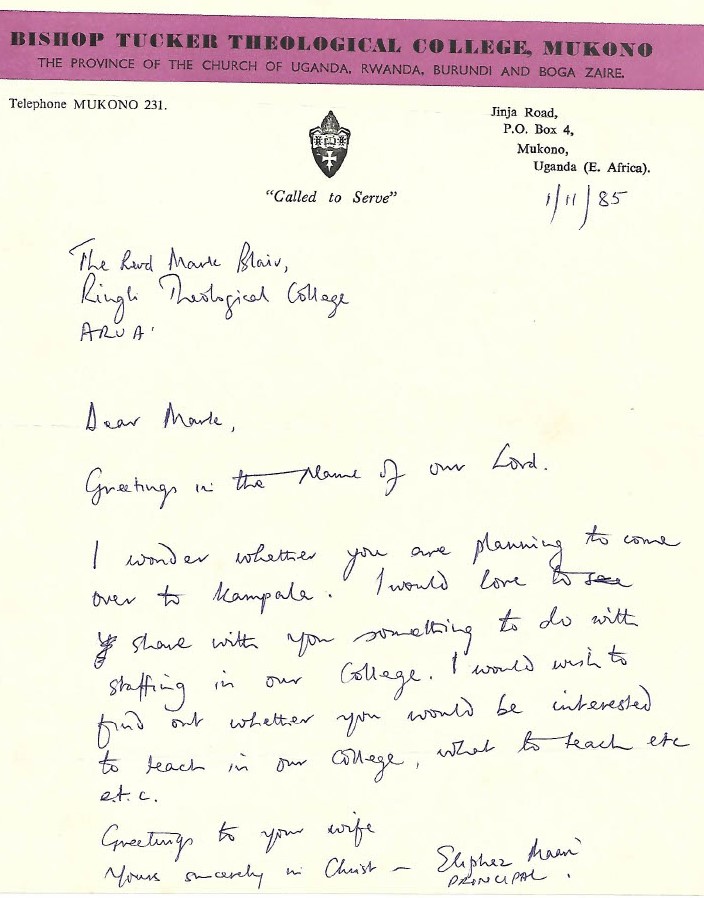 BISHOP TUCKER THEOLOGICAL COLLEGE, MUKONO
THE PROVINCE OF THE CHURCH OF UGANDA, RWANDA, BURUNDI AND BOGA ZAIRE.
Telephone MUKONO 231.
Jinja Road,
P.O. Box 4,
Mukono,
Uganda (E. Africa).
"Called to Serve"
1/11/85
The Revd Mark Blair,
Ringli Theological College
ARUA
Dear Mark,
Greetings in the Name of our Lord.
I wonder whether you are planning to come
over to Kampala. I would love to see
share with you something to do with
staffing in our College. I would wish to
find out whether you would be interested
to teach in our College, what to teach etc
e.t.c.
Greetings to your wife
Yours sincerely in Christ – Eliphaz Maari
PRINCIPAL.